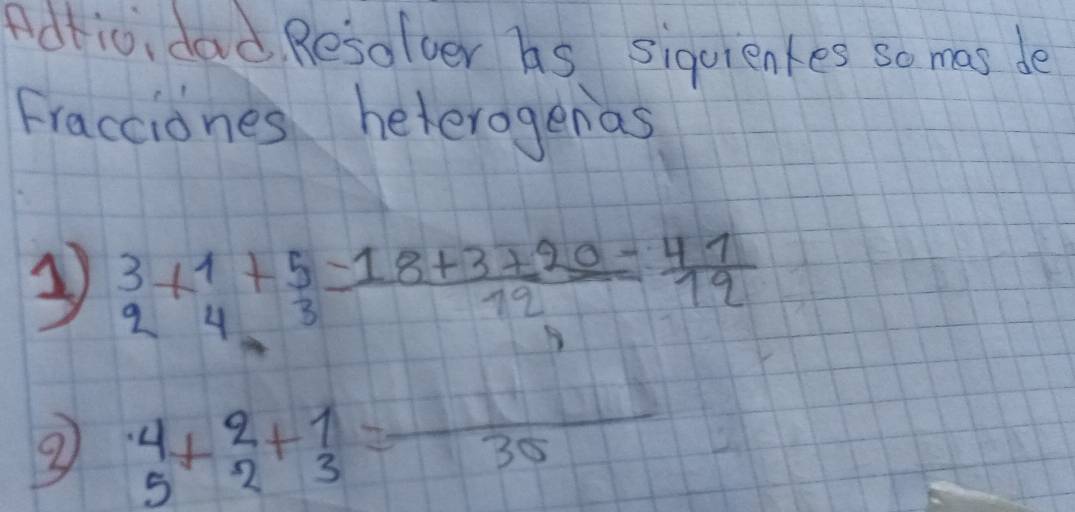 Adtio,dad. Resolver las siquientes somas de
Fracciones heterogenas
1) 3/2 + 1/4 + 5/3 = 18+3+20/12 = 41/12
2) 4/5 + 2/2 + 1/3 = /30